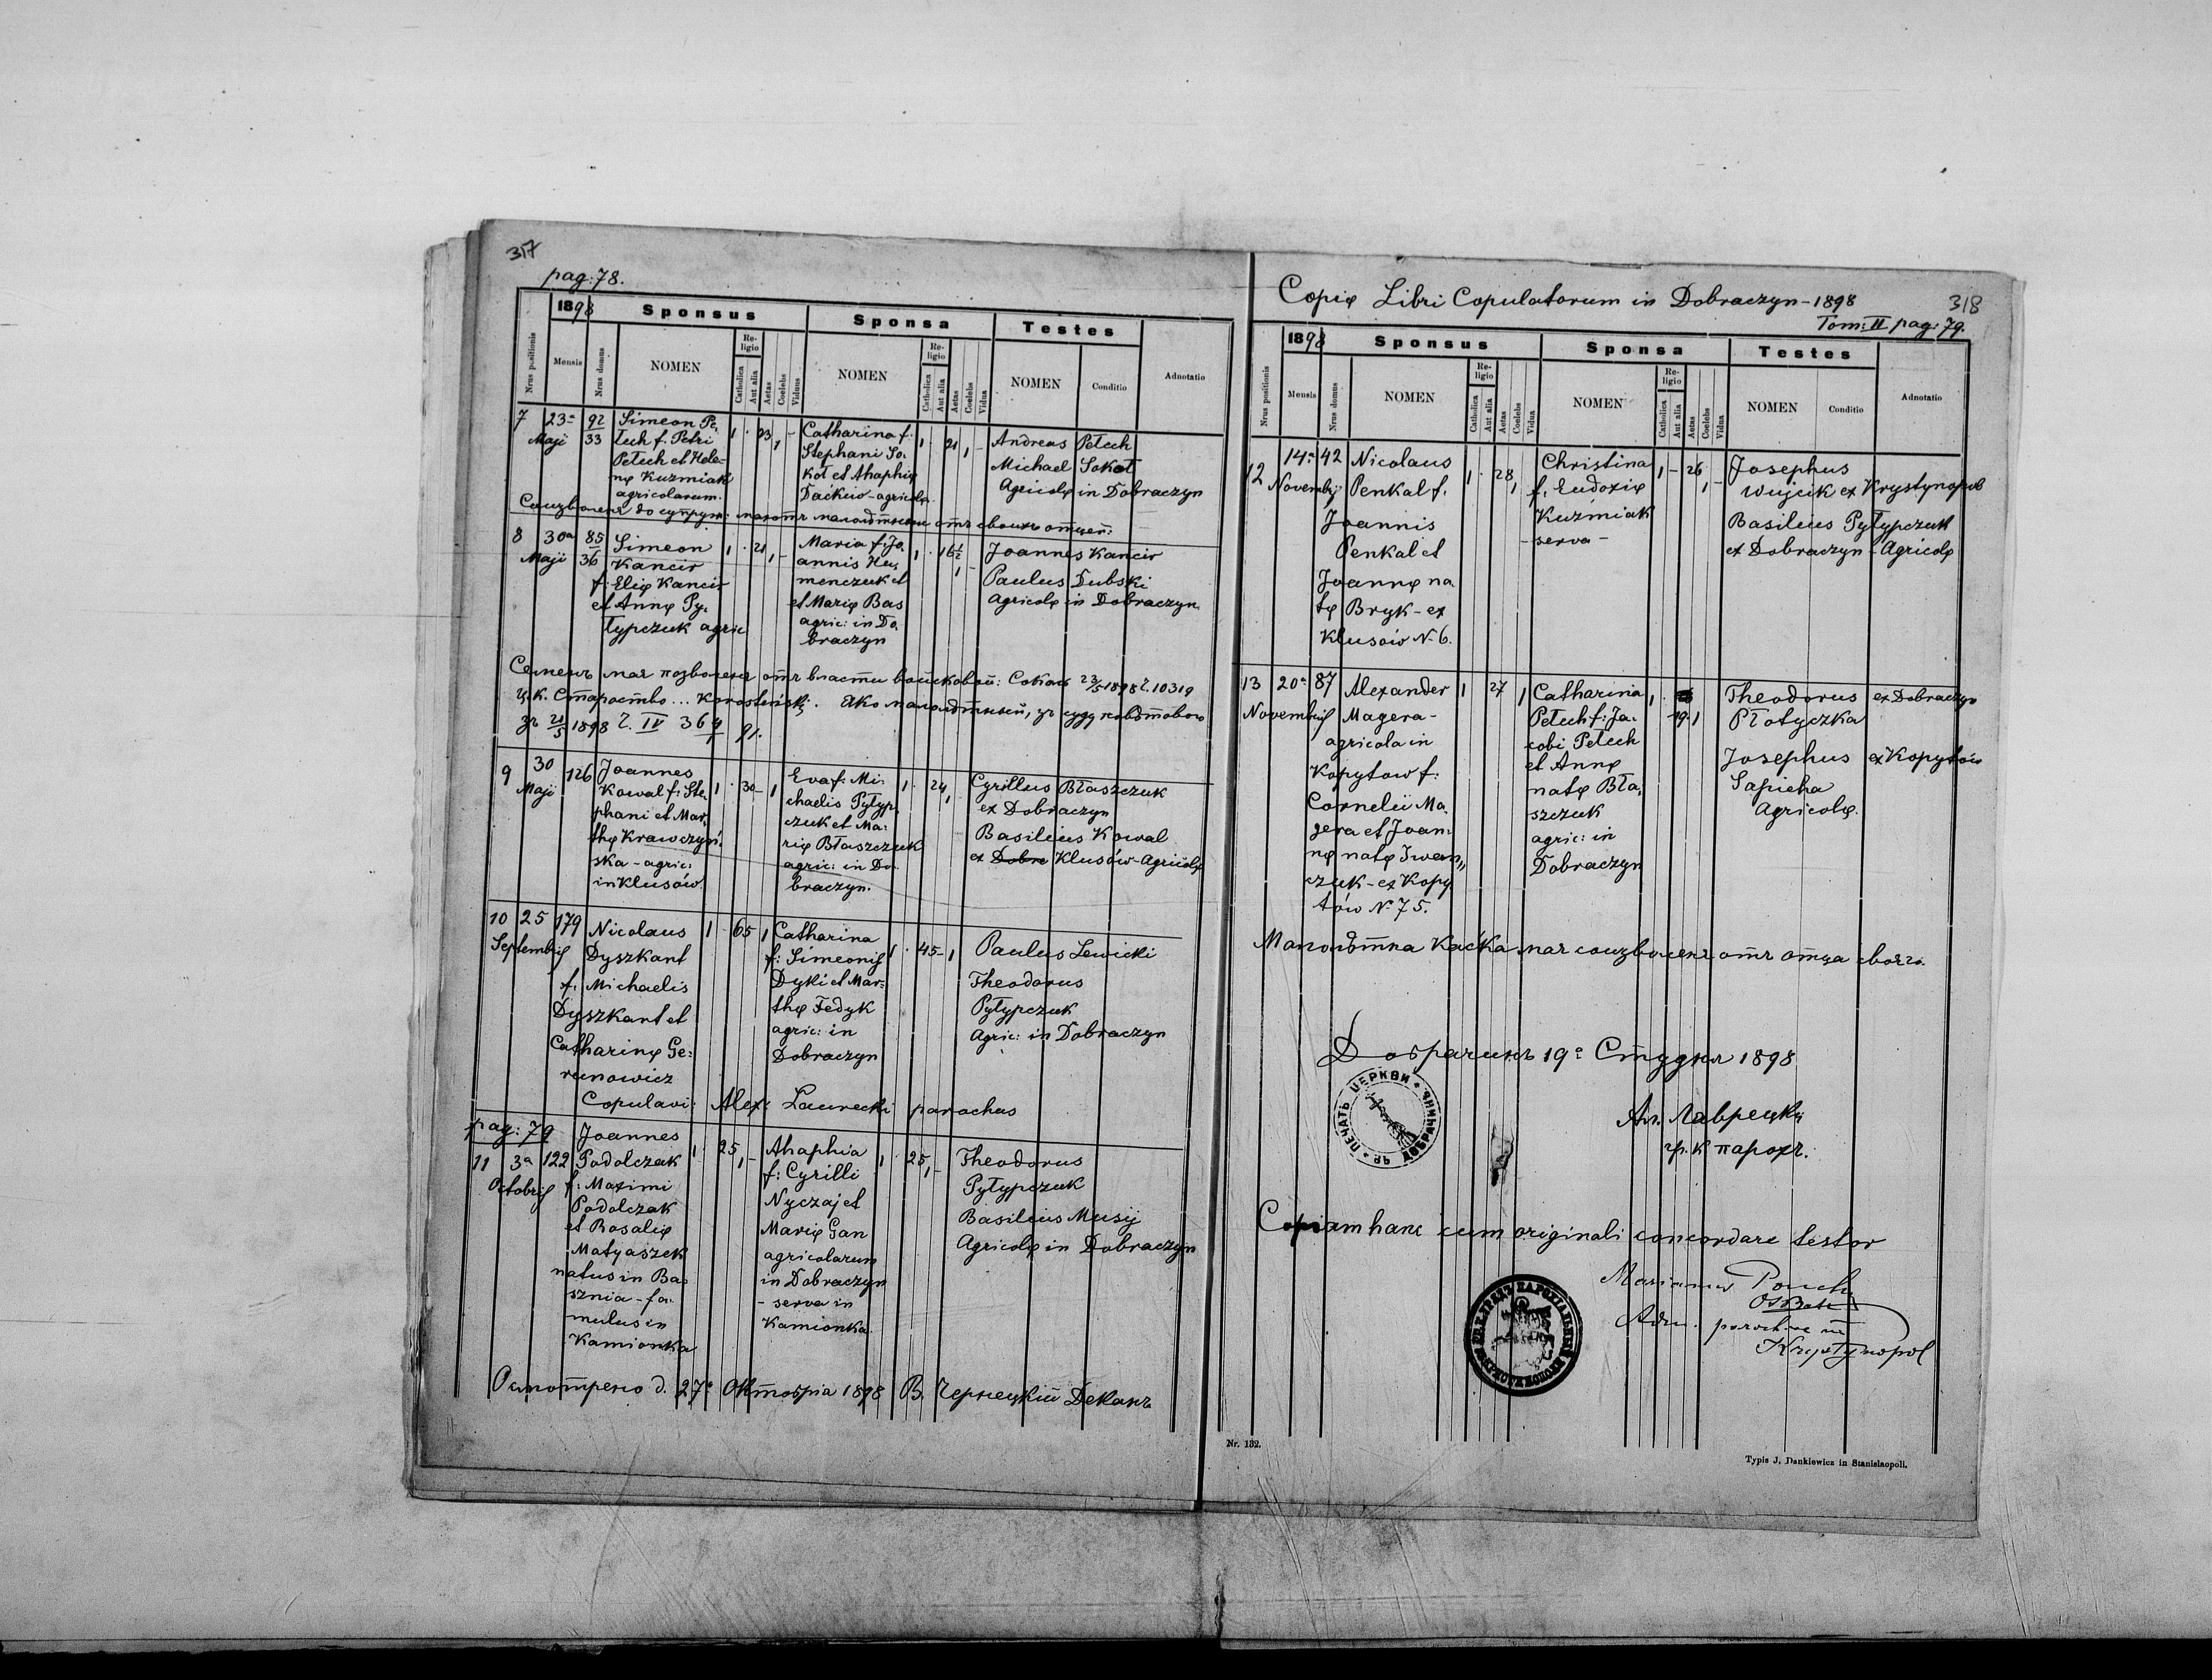 317
pag: 78.
1898
Sponsus
Sponsa
Testes
Nrus positionis
Mensis
Nrus domus
NOMEN
Religio
Catholica
Aut alia
Aetas
Coelebs
Viduus
NOMEN
Religio
Catholica
Aut alia
Aetas
Coelebs
Vidua
NOMEN
Conditio
Adnotatio
7 23a Maji 92/33
Simeon Pe-
łech f. Petri
Pełech et Hele-
nę Kuzmiak
agricolarum.
1 · 23 1 -
Catharina f.
Stephani So-
koł et Ahaphię
Daćkiw - agricola.
1 · 21 1 -
Andreas Pełech
Michael Sokoł
Agricolę in Dobraczyn
8 30a Maji 85/36
Simeon
Kancir
f: Elię Kancir
et Annę Py-
łypczuk agric
1 · 21 1 -
Maria f: Jo-
annis Hu-
menczuk et
et Marię Bas
agric: in Do-
braczyn
1 · 16 1/2 1 -
Joannes Kancir
Paulus Dubski
Agricolę in Dobraczyn.
Семенъ мая позволеня отъ власти войсковой: Сокаль 23/5 1898 Č. 10319
зъ 21/5 1898 Č. IV
9 30 Maji 126
Joannes
Kowal f: Ste-
phani et Mar-
thę Krawczyń-
ska - agric:
in Klusów.
1 · 30 - 1
Eva f: Mi-
chaelis Pyłyp-
czuk et Ma-
rię Błaszczuk
agric: in Do-
braczyn.
1 · 24 1
Cyrillus Błaszczuk
ex Dobraczyn
Basilius Kowal
ex Dobra Klusów - Agricolę
10 25 Septembris 179
Nicolaus
Dyszkant
f. Michaelis
Dyszkant et
Catharinę Ge-
runowicz
1 - 65 1
Catharina
f: Simeonis
Dyki et Mar-
thę Fedyk
agric: in
Dobraczyn
1 · 45 - 1
Paulus Lewicki
Theodorus
Pyłypczuk
Agric: in Dobraczyn
Copulavi: Alex: Laurecki parochus
pag: 79
11 3a Octobris 122
Joannes
Podolczak
f: Maximi
Podolczak
et Rosalię
Matyaszek
natus in Ba-
sznia - fa-
mulus in
Kamionka
1 · 25 1 -
Ahaphia
f: Cyrilli
Nyczaj et
Marię Gan
agricolarum
in Dobraczyn
- serva in
Kamionka.
1 · 25 1 -
Theodorus
Pyłypczuk
Basilius Musij
Agricolę in Dobraczyn
Осмотрено д. 27о Октобрія 1898 В. Чернецкій Деканъ
Copię Libri Copulatorum in Dobraczyn - 1898
318
Tom: II pag: 79.
1898
Sponsus
Sponsa
Testes
Nrus positionis
Mensis
Nrus domus
NOMEN
Religio
Catholica
Aut alia
Aetas
Coelebs
Viduus
NOMEN
Religio
Catholica
Aut alia
Aetas
Coelebs
Vidua
NOMEN
Conditio
Adnotatio
12 14a Novembris 42
Nicolaus
Penkal f.
Joannis
Penkal et
Joannę na-
tę Bryk - ex
Klusów N. 6.
1 · 28 1
Christina
f. Eudoxię
Kuzmiak
- serva -
1 - 26 1 -
Josephus
Wujcik ex Krystynopol
Basilius Pyłypczuk
ex Dobraczyn - Agricolę
13 20a Novembris 87
Alexander
Magera -
agricola in
Kopytow f:
Cornelii Ma-
gera et Joan-
nę natę Iwan-
czuk - ex Kopy
tów N. 75.
1 27 1
Catharina
Pełech f: Ja-
cobi Pełech
et Annę
natę Bła-
szczuk
agric: in
Dobraczyn
1 · 19 · 1
Theodorus ex Dobraczyn
Płotyczka
Josephus ex Kopytów
Sapieha
Agricolę.
Малолѣтна Каська мая соизволеня отъ отца своего.
Добрачинъ 19о Студня 1898
ПЕЧАТЬ ЦЕРКВИ
Ал. Лаврецкій
гр. к парохъ.
Copiam hanc cum originali concordare testor
Marianus
OSBM
Adm. parochiae in
Krystynopol
Nr. 132.
Typis J. Dankiewicz in Stanislaopoli.